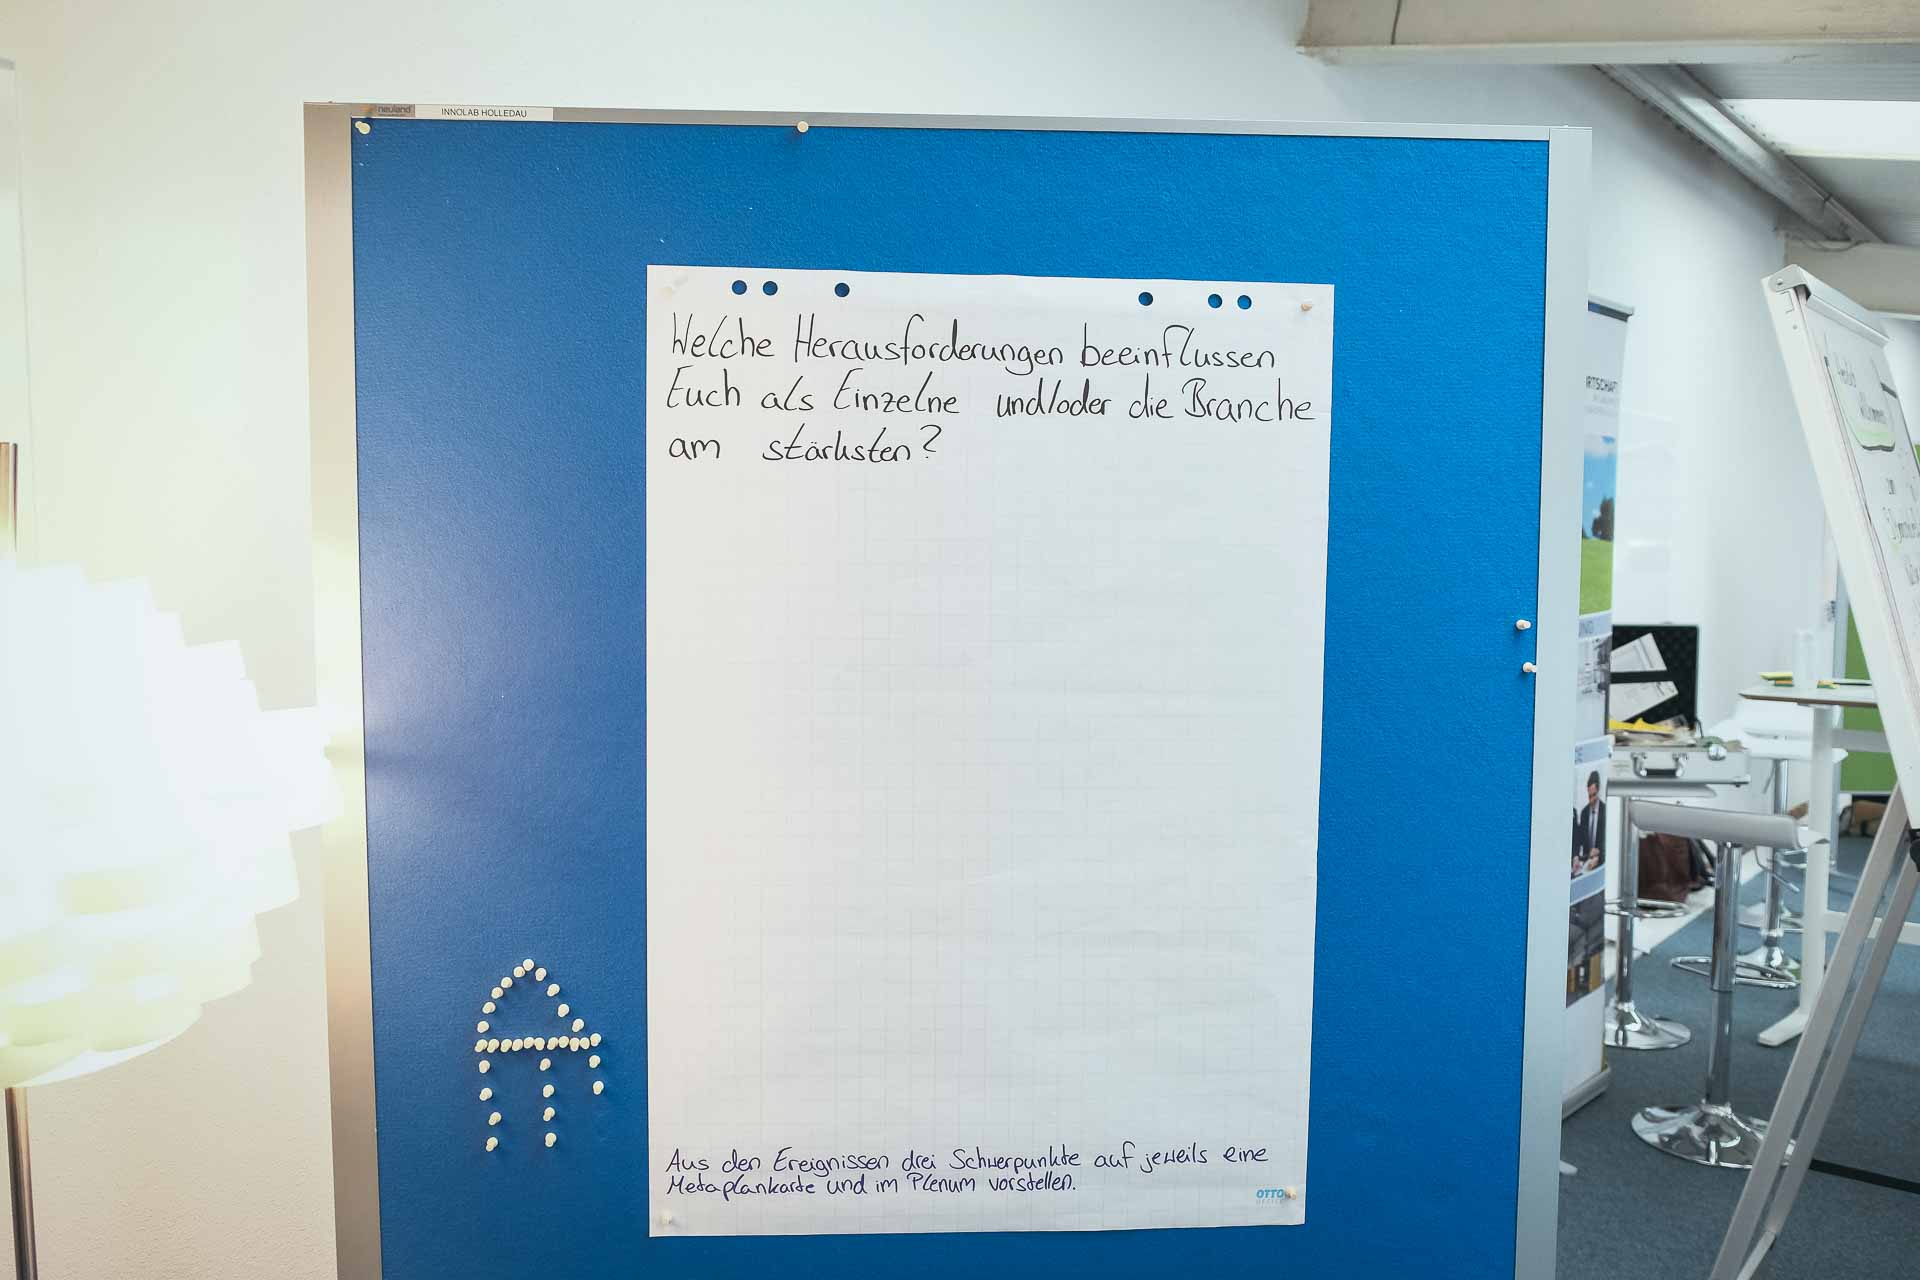 neuland
INNOLAB HOLLEDAU
Welche Herausforderungen beeinflussen
Euch als Einzelne und/oder die Branche
am stärksten?
Aus den Ereignissen drei Schwerpunkte auf jeweils eine
Metaplankarte und im Plenum vorstellen.
OTTO
OFFICE